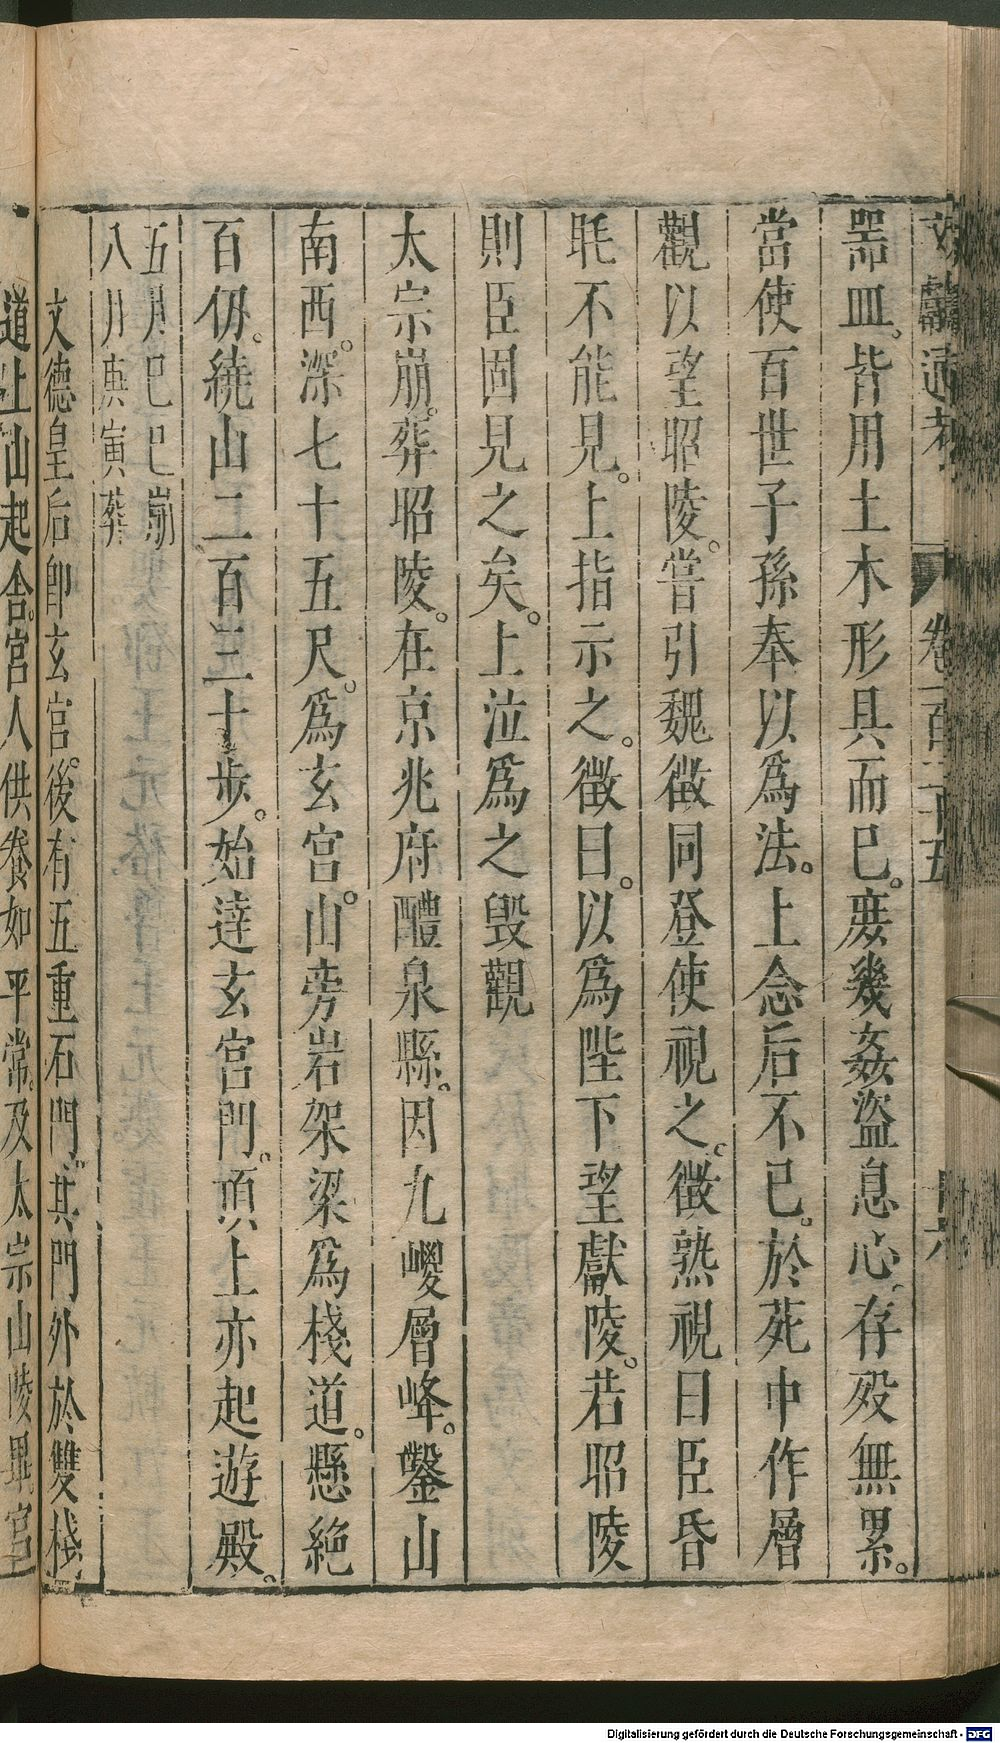 文獻通考 卷一百二十五 十六
噐皿。皆用土木形具而已。庻幾姦盜息心。存殁無累。
當使百世子孫奉以爲法。上念后不已。於苑中作層
觀以望昭陵。嘗引魏徵同登使視之。徵熟視曰臣昏
眊不能見。上指示之。徵曰。以爲陛下望獻陵。若昭陵
則臣固見之矣。上泣爲之毁觀
太宗崩。葬昭陵。在京兆府醴泉縣。因九嵕層峰。鑿山
南西。深七十五尺。爲玄宫。山旁岩架梁爲棧道。懸絶
百仞。繞山二百三十步。始達玄宫門。頂上亦起遊殿。
五月己巳崩
八月庚寅葬
文德皇后卽玄宫。後有五重石門。其門外於雙棧
道上山起舍。宫人供養如平常。及太宗山陵畢宫
Digitalisierung gefördert durch die Deutsche Forschungsgemeinschaft - DFG